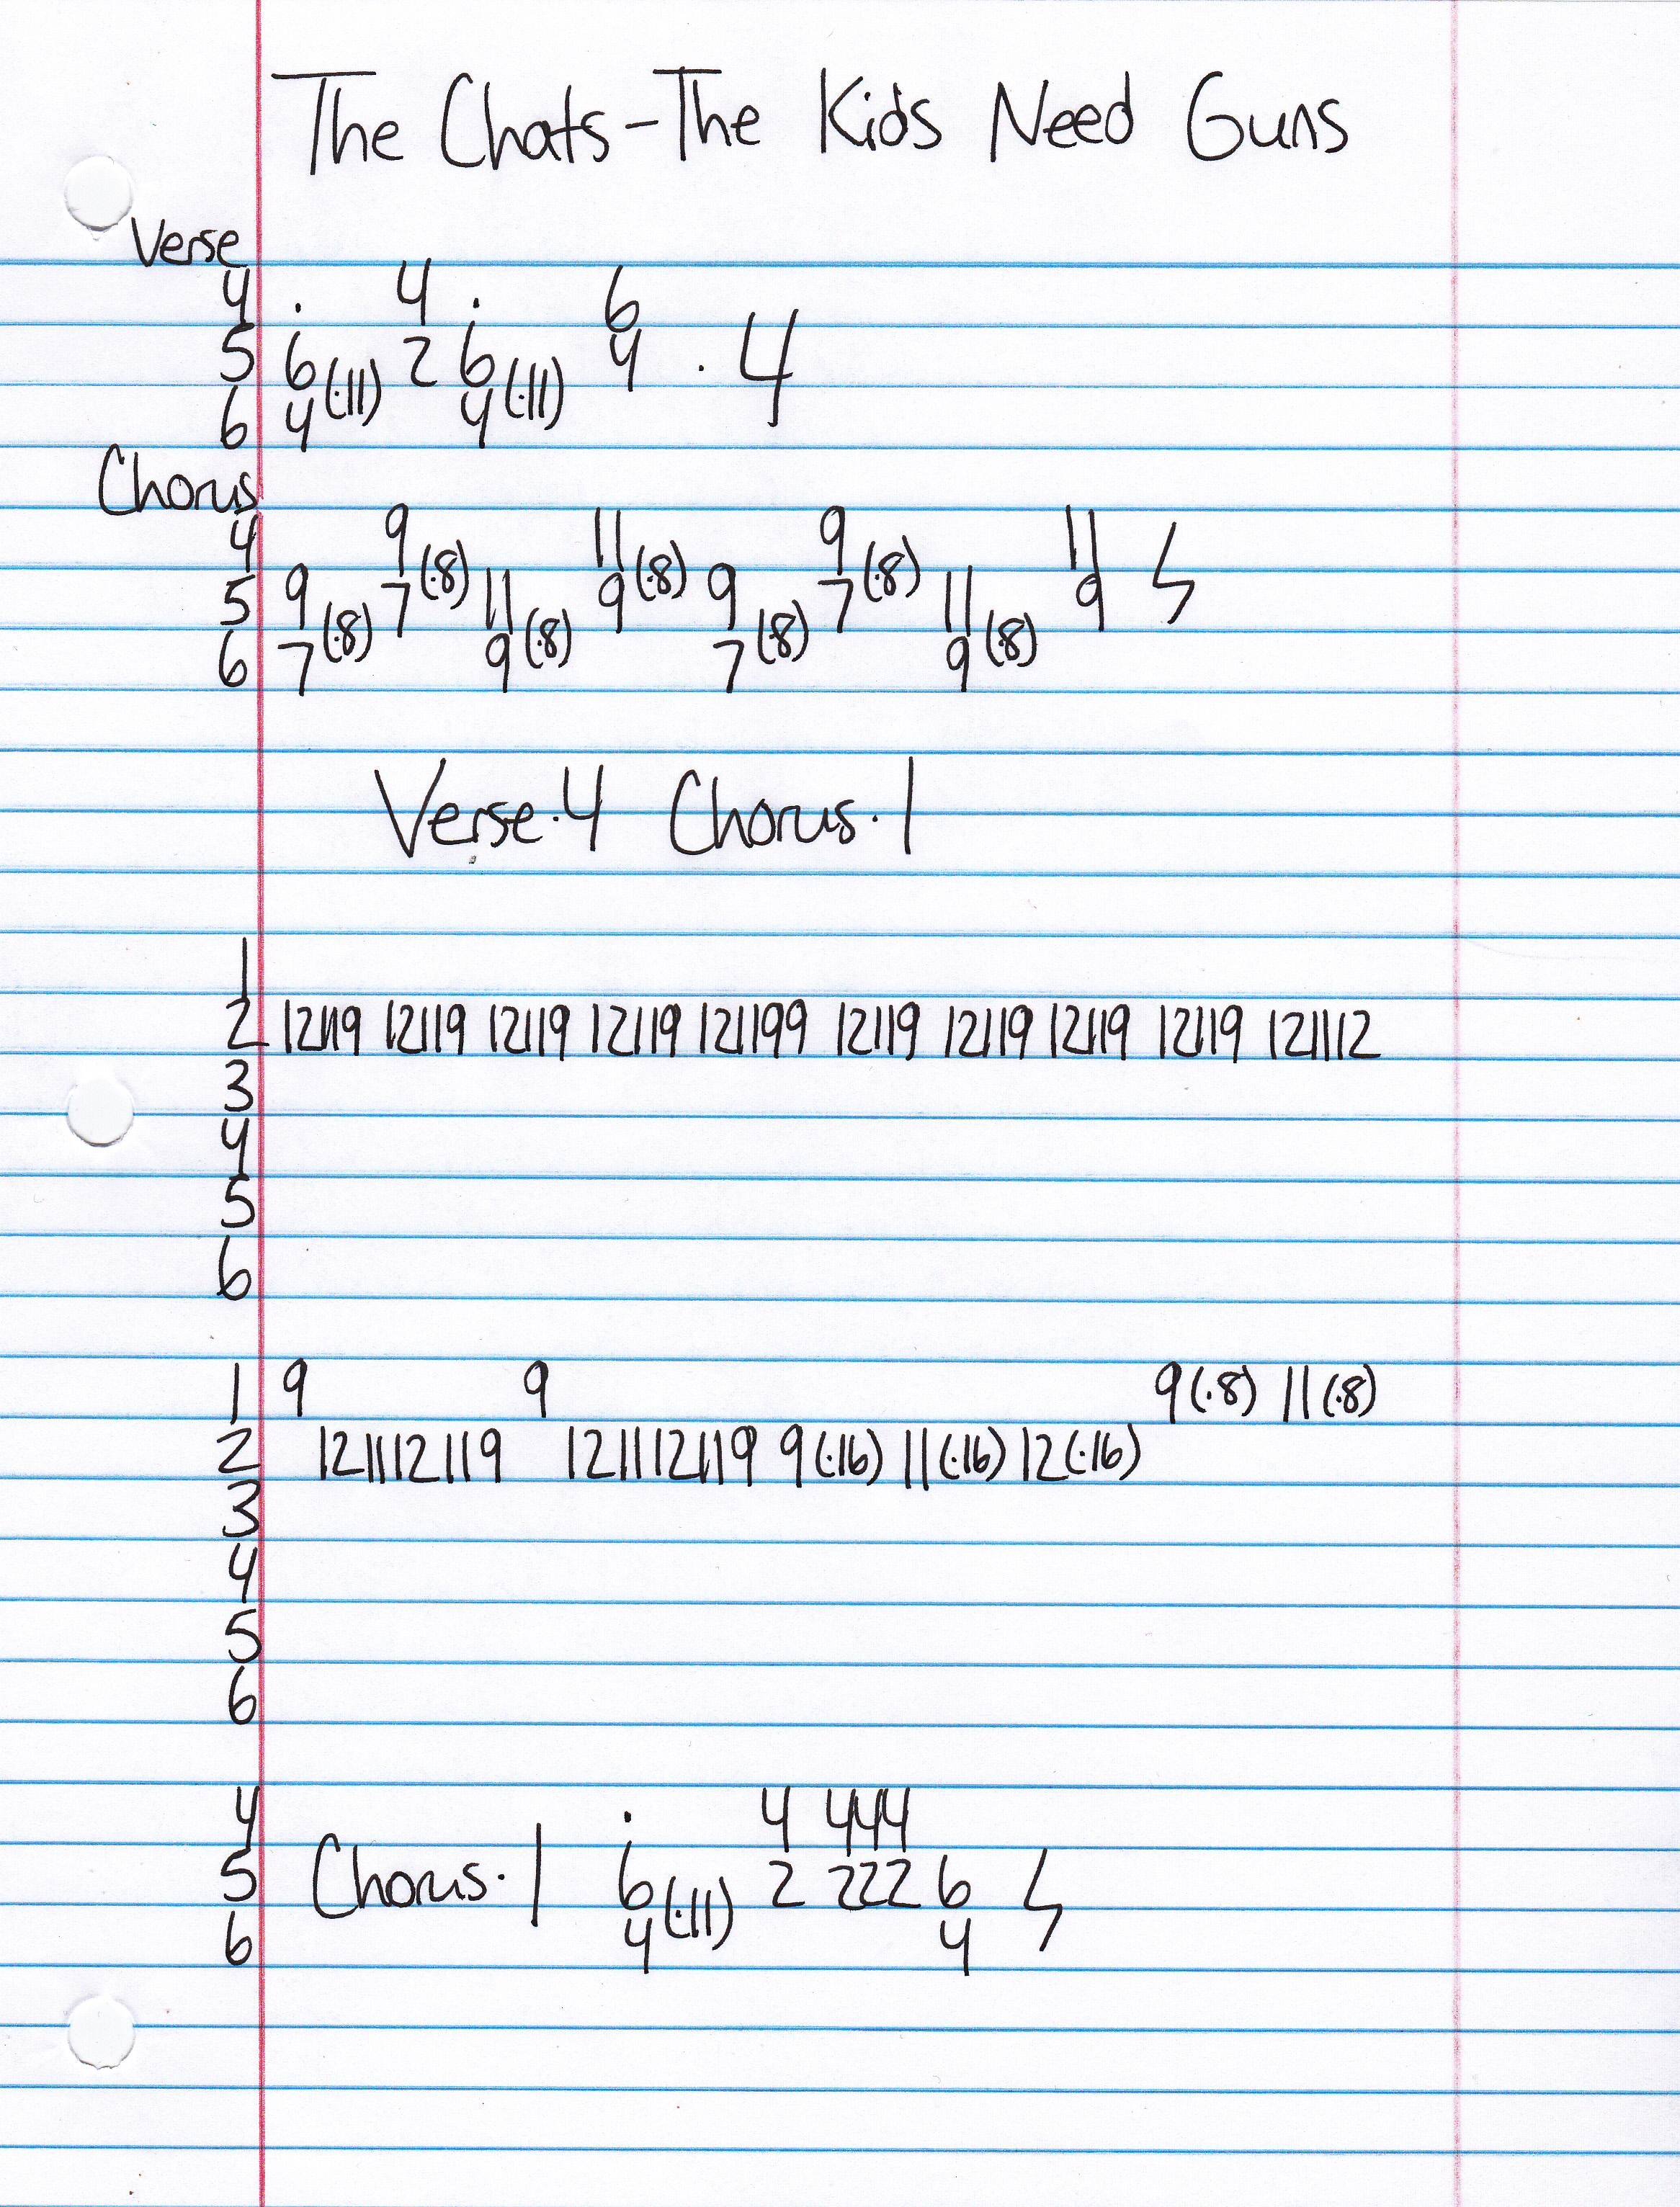 The Chats - The Kids Need Guns
Verse
4 . 4 . 6
5 6 (.11) 2 6 (.11) 4 . 4
6 4 4
Chorus
4 9 (.8) 11 (.8) 9 (.8) 11
5 9 (.8) 7 11 (.8) 9 9 (.8) 7 11 (.8) 9
6 7 9 7 9
Verse.4 Chorus.1
1
2 12119 12119 12119 12119 121199 12119 12119 12119 12119 121112
3
4
5
6
1 9 9 9(.8) 11(.8)
2 121112119 121112119 9(.16) 11(.16) 12(.16)
3
4
5
6
4 . 4 444
5 Chorus.1 6 (.11) 2 222 6
6 4 4